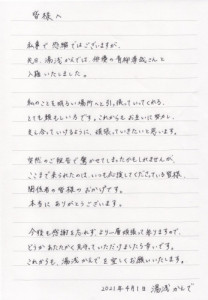 皆様へ
私事で恐縮ではございますが、
先日、湯浅かんでは、俳優の青柳尊哉さんと
入籍いたしました。
私のことも明るい場所へと引っ張っていってくれる、
とても頼もしい方です。これからもお互いに努力し、
支え合っていけるように、頑張っていきたいと思います。
突然のご報告で驚かせてしまったかもしれませんが、
ここまで来られたのは、いつも応援してくださっている皆様、
関係者の皆様のおかげです。
本当にありがとうございます。
今後も感謝を忘れず、より一層頑張って参りますので、
どうかあたたかく見守っていただけましたら幸いです。
これからも、湯浅かんでを宜しくお願いいたします。
2021年4月1日 湯浅かんで